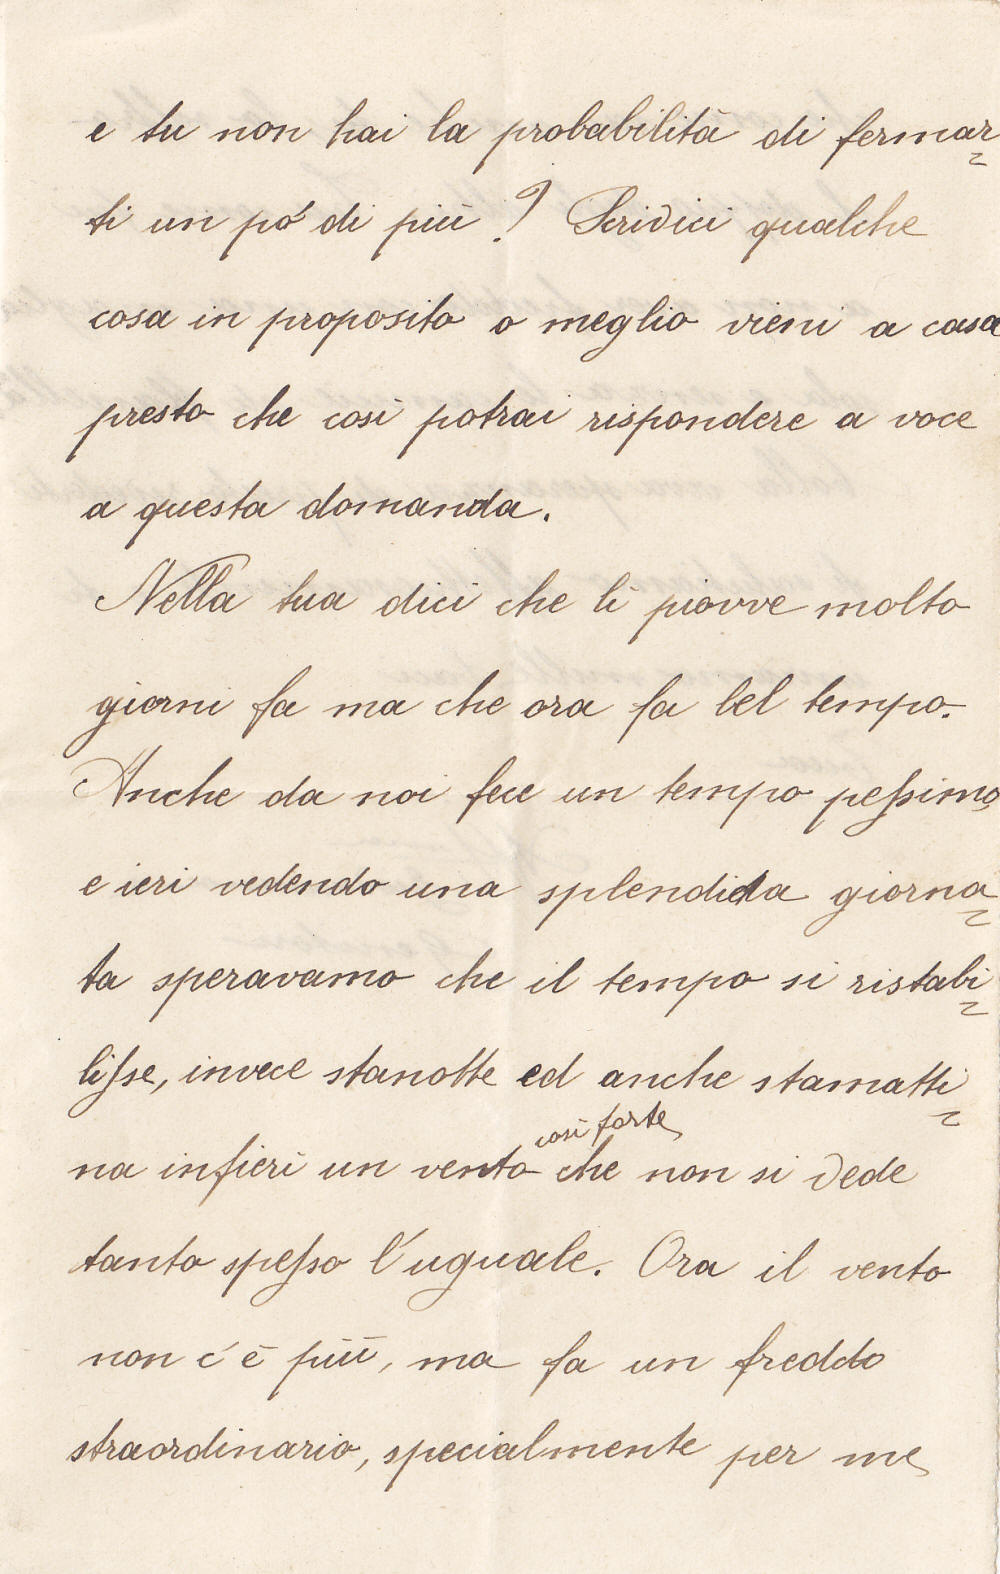 e tu non hai la probabilità di fermar=
ti un pó di più? Scrivici qualche
cosa in proposito o meglio vieni a casa
presto che così potrai rispondere a voce
a questa domanda.
Nella tua dici che lì piovve molto
giorni fa ma che ora fa bel tempo.
Anche da noi fece un tempo peſsimo,
e ieri vedendo una splendida giorna=
ta speravamo che il tempo si ristabi=
liſse, invece stanotte ed anche stamatti=
così forte
na infierì un vento che non si vede
tanto speſso l'uguale. Ora il vento
non c'è più, ma fa un freddo
straordinario, specialmente per me